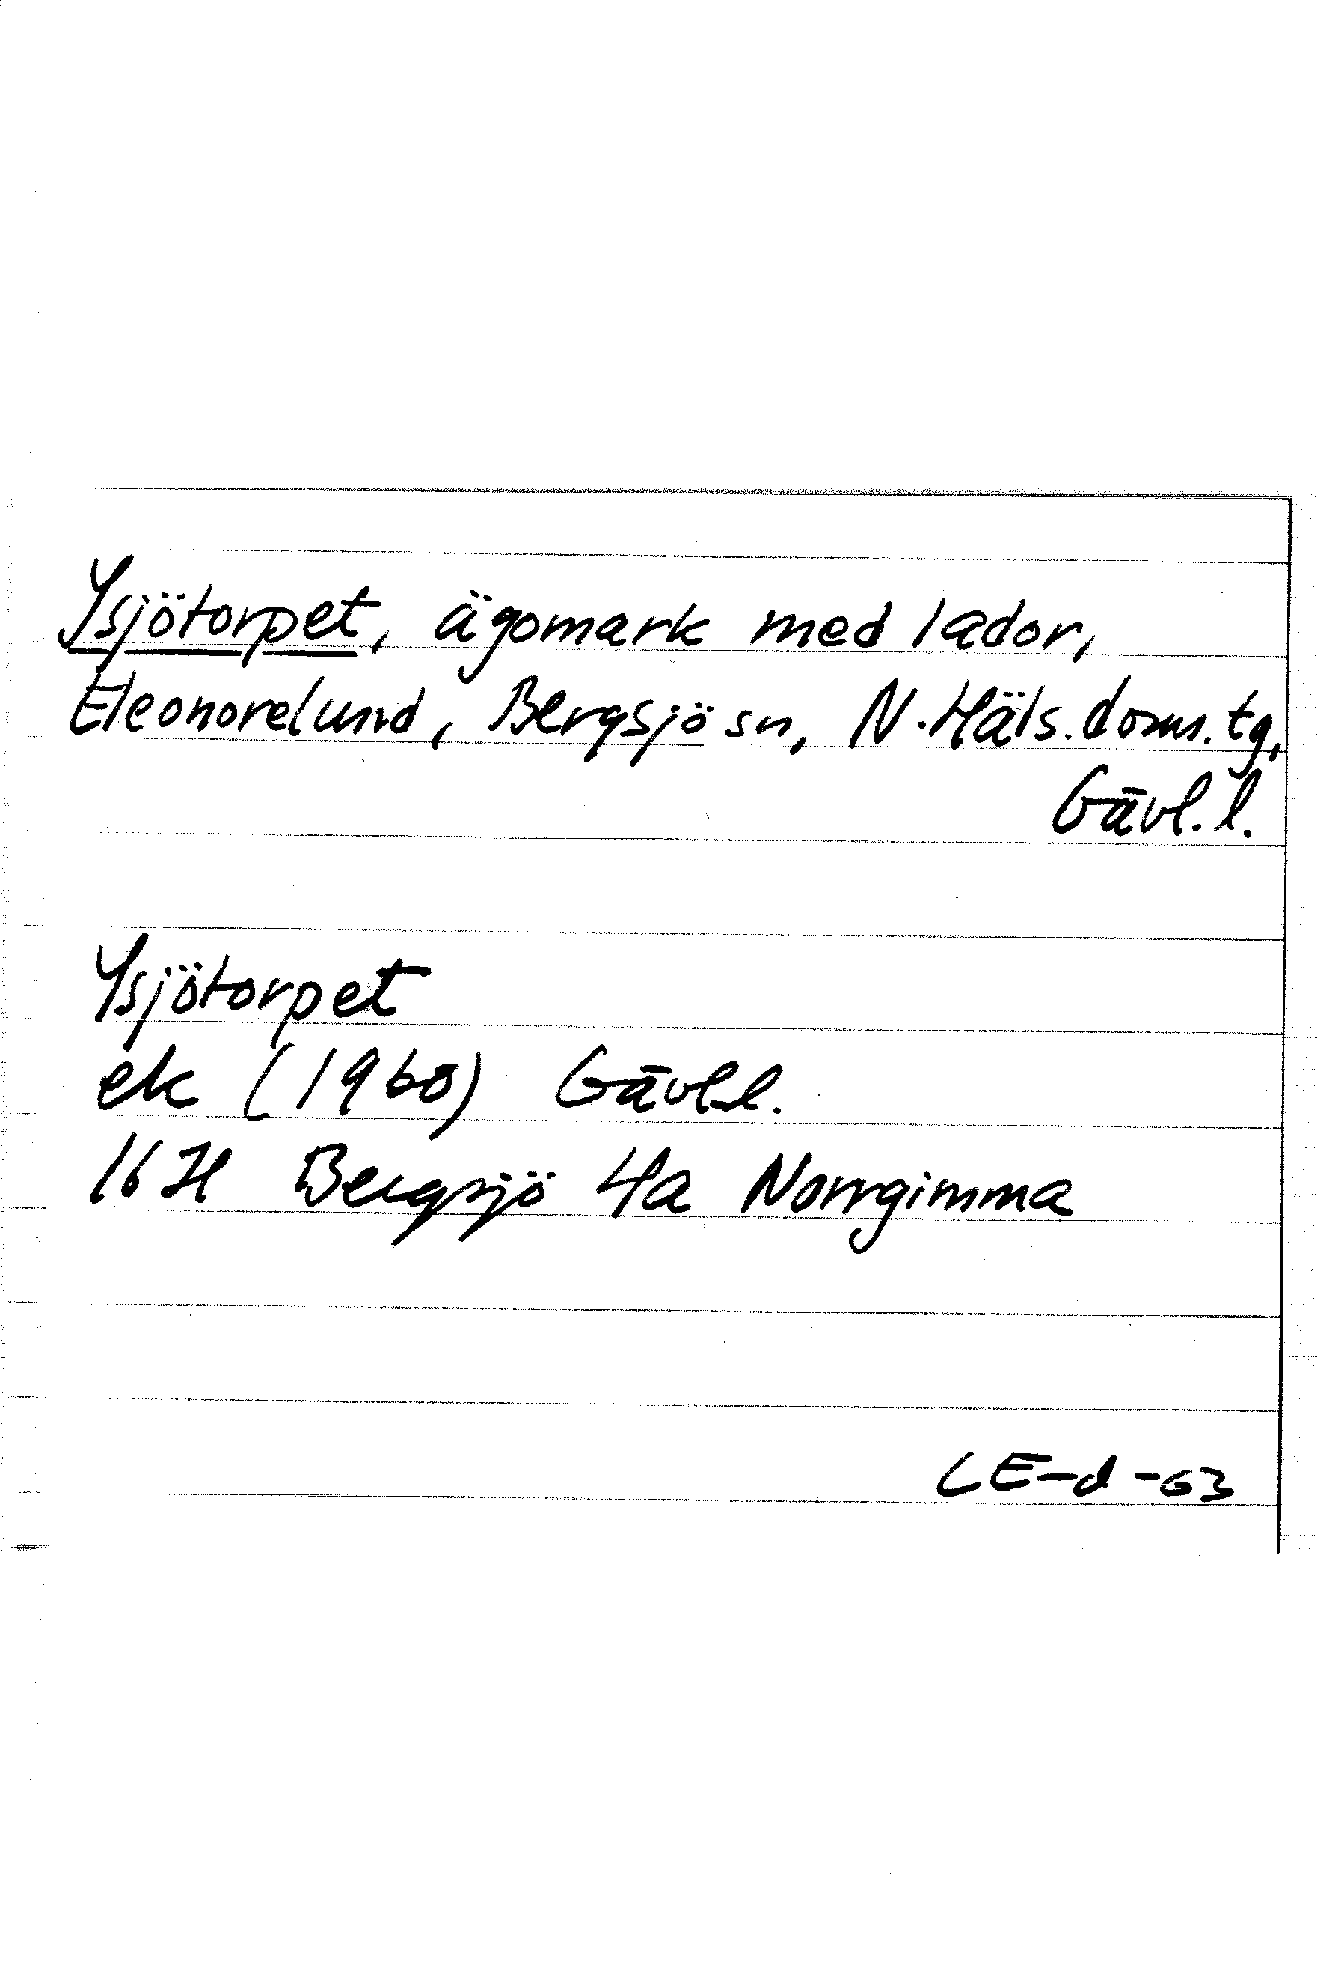 Ysjötorpet, ägomark med lador,
Eleonorelund, Bergsjö sn, N. Häls. doms. tg,
Gävl. l.
Ysjötorpet
ek (1960) Gävl.l.
16 H Bergsjö 4a Norrgimma
CE-d-63